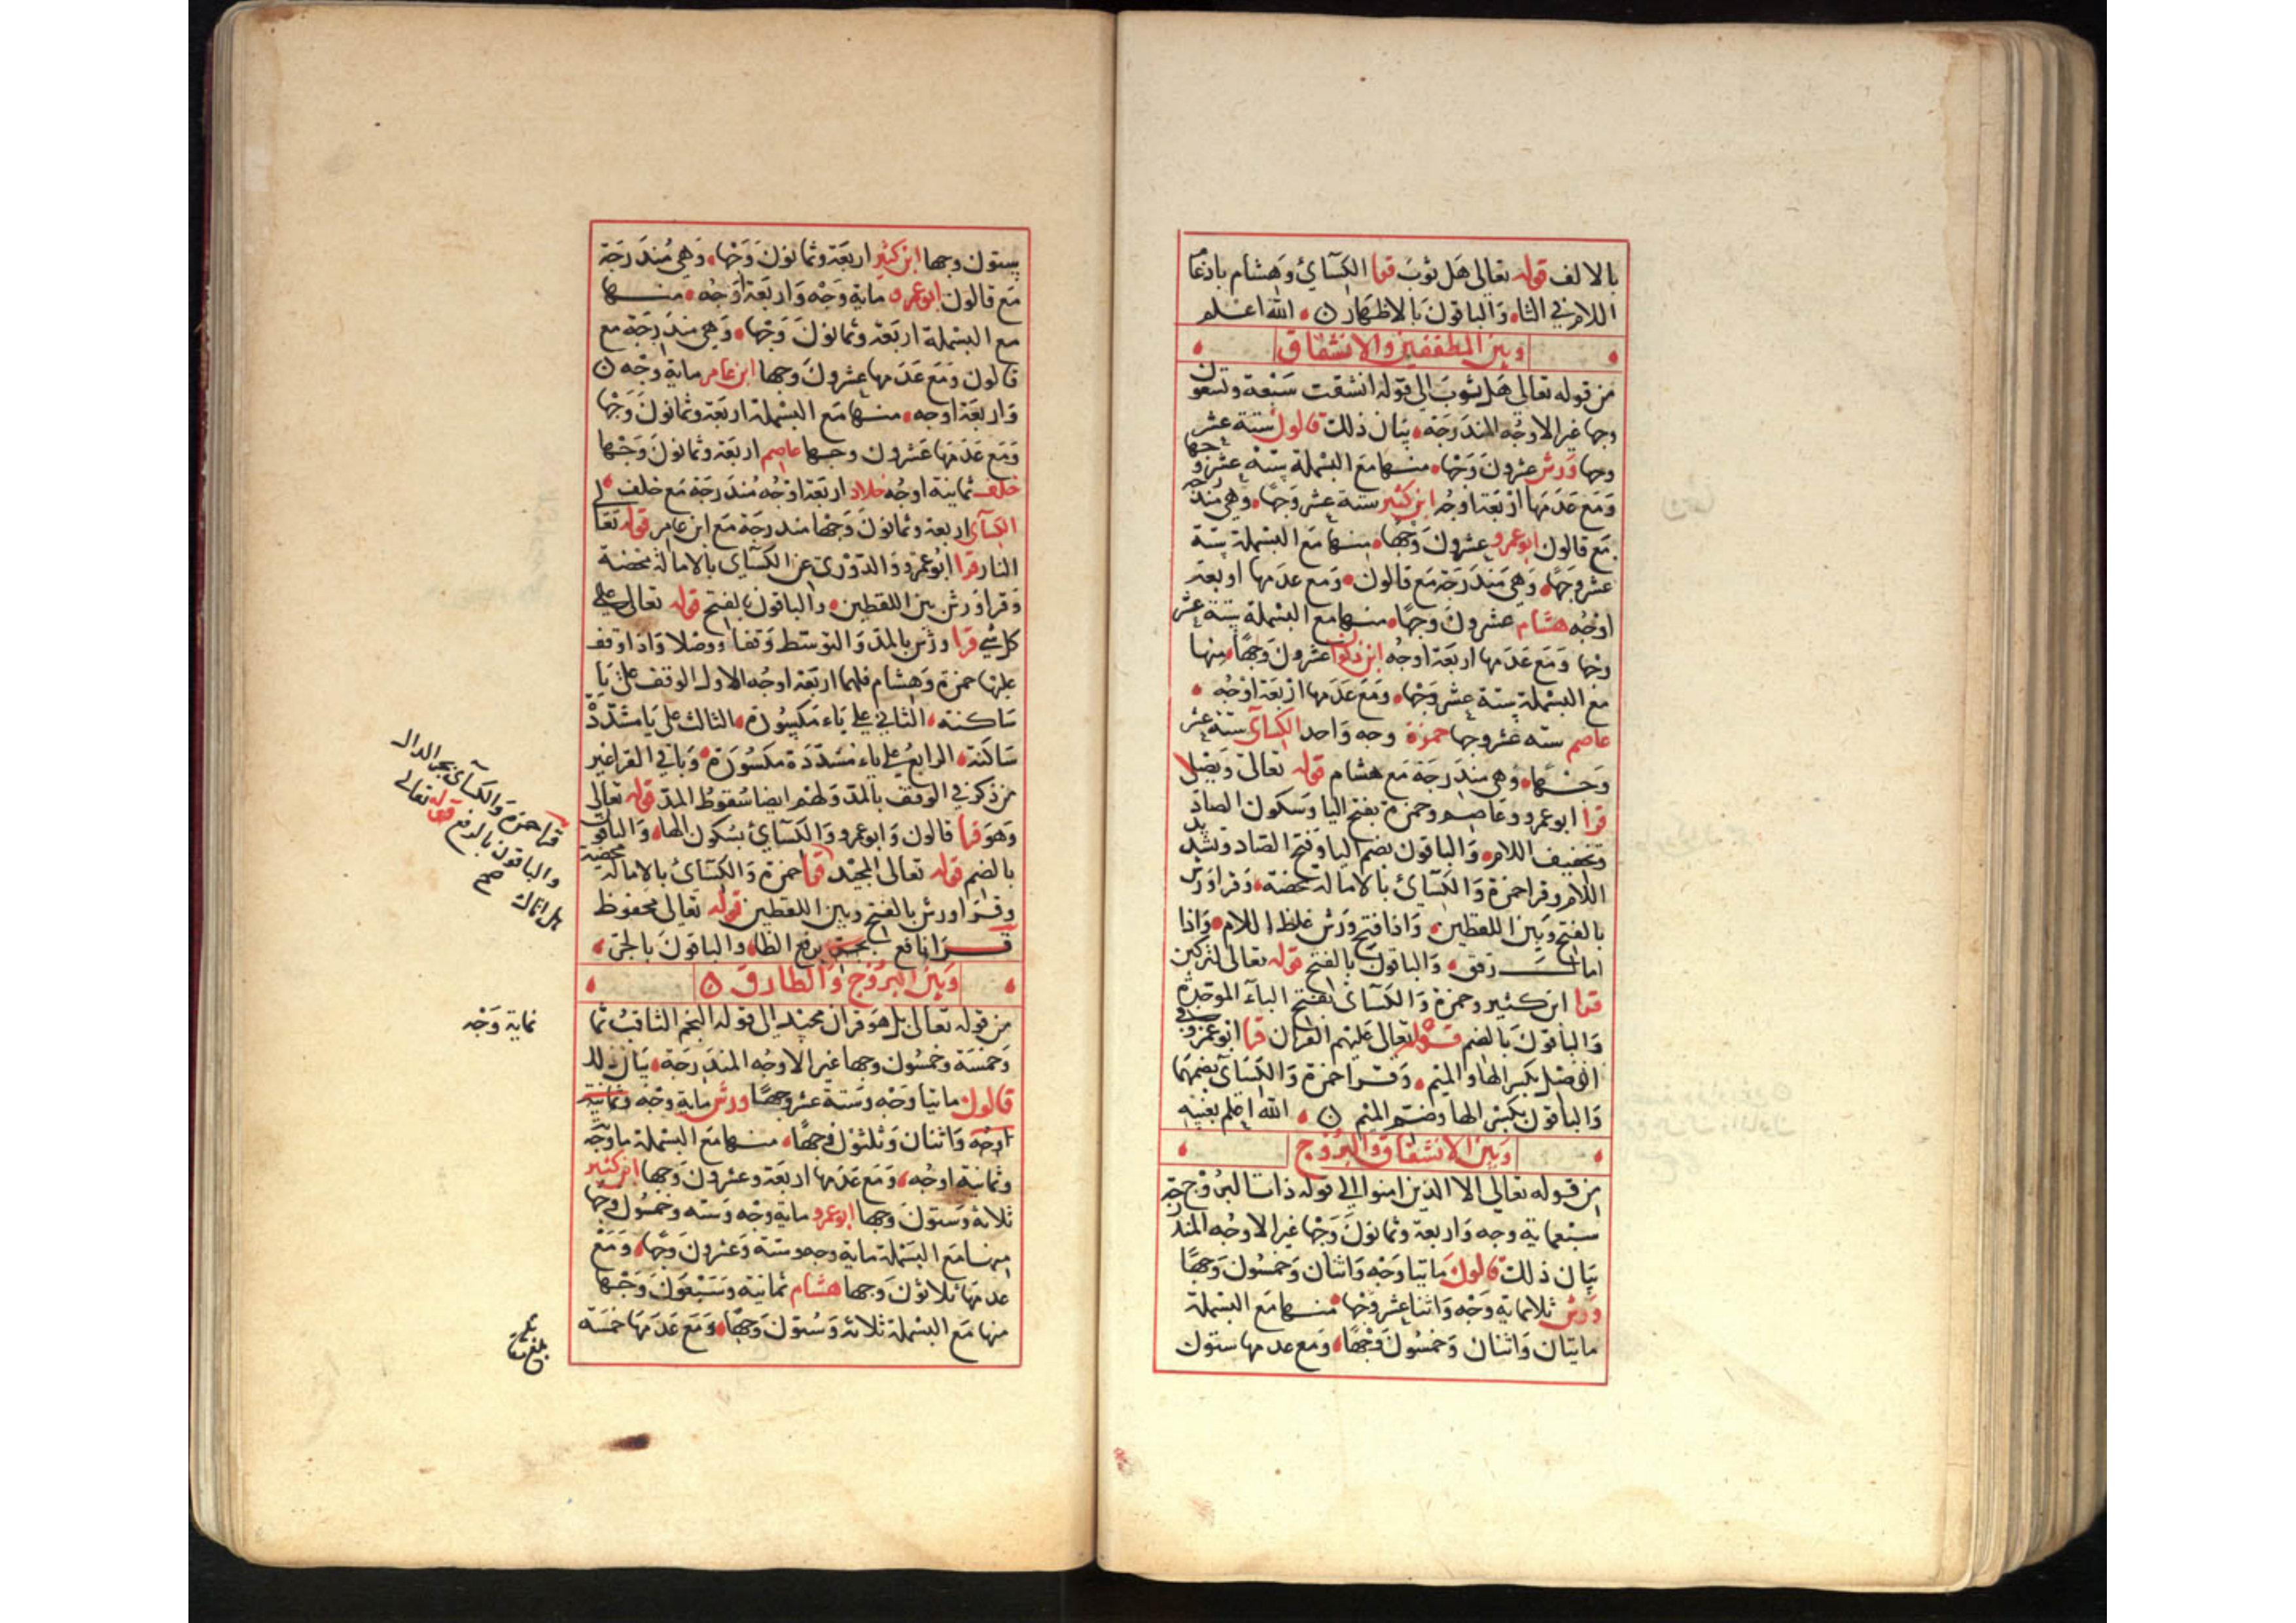 بالالف قوله تعالى هَل ثوبَ قرا الكسَائ وَهشام بادغام
اللام في الثا وَالباقونَ بالاظهَار ن الله اعلم
وبين المطففين والانشقاق
من قوله تعالى هَل ثوبَ الى قوله انشقت سَبْعة وتسعون
وجها غير الاوجُه المندَرجَة بيَان ذلك قالون ستة عشر
وجها وَرش عشرونَ وَجْها منها مَع البسْملة ستة عشر وجها
وَمَع عَدَمهَا ارْبَعَة اوجُه ابن كثير ستة عشر وَجهًا وهي مندرجه
مَع قالون ابوعمرو عشرونَ وَجهًا منها مَع البسملة ستة
عشر وجهًا وَهي مَندَرجَة مَع قالون وَمع عدَمها اربعَة
اوْجُه هشام عشرونَ وَجهًا منها مع البسْملة ستة عشر
وجْها وَمَع عَدَمها اربَعَة اوجهُ ابن ذكوان عشرونَ وَجهًا منها
مع البسْملة ستة عشر وَجْها وَمَع عَدَمها ارْبَعَة اوْجُه
عَاصم سته عشر وجها حمزة وجه وَاحد الكسآى ستة عشر
وَجْها وَهي مندَرجَة مَع هشام قوله تعَالى وَيصْلى
قرا ابوعمرو وَعَاصم وحمزة بفتح اليا وَسكون الصاد
وتخفيف اللام وَالباقون بضم اليا وَفتح الصَاد وَتشديد
اللام وقرا حمزة وَالكسَائ بالامَالة محضة وَقرا وَرش
بالفتح وَبَين اللفظين وَاذا فتح وَرش غلظ اللام وَاذا
امال رقق وَالباقونَ بالفتح قوله تعالى لتركبن
قرا ابن كثير وحمزة وَالكسَائ بفتح البآء الموحدة
وَالباقونَ بالضم قوله تعالى عَليْهم القرآن قرا ابوعمرو في
الوَصْل بكسر الها والميم وَقرا حمزة وَالكسَآئ بضمهما
وَالباقون بكسْر الها وضم الميم ن الله اعلم بغيبه
وَبَين الانشقاق وَالبُرُوج
من قوله تعالى الا الذين امنوا الى قوله ذات البُرُوج
سبْعماية وجه وَاربعَة وثمانونَ وَجْها غير الاوجُه المندرجة
بيَان ذلك قالون مايتا وَجْه وَاثنان وَخمسُون وَجهًا
وَرش ثلاثماية وَجْه وَاثنا عشر وَجْها منها مَع البسملة
مايتان وَاثنان وَخمسُونَ وَجْهًا وَمع عدمها ستون
ستون وجها ابن كثير اربعَة وثمانونَ وَجْها وَهي مُندَرجَة
مَع قالون ابوعمرو مايَة وَجْه وَاربَعَة اوْجُه منها
مع البسْملة اربَعَة وثمانونَ وَجْها وَهي مندَرجَة مع
قالون وَمَع عَدَمها عشرونَ وجها ابن عَامر ماية وجْه
وَاربَعَة اوجه منها مَع البسْملة اربَعَة وثمانونَ وَجْها
وَمَع عَدَمهَا عشرون وجها عاصم اربعَة وثمانونَ وَجْها
خلف ثمانية اوجُه خلاد اربعَة اوْجُه مُندَرجَة مَع خلف
الكسَآى اربعة وثمانونَ وَجْها مندرجَة مَع ابن عامر قوله تعالى
النار قرا ابُوعمْرو وَالدّوْرى عن الكسَآى بالامالة محضة
وَقرا وَرش بين اللفظين وَالباقون بالفتح قوله تعالى على
كل شي قرا ورْش بالمدّ وَالتوسّط وَقفا ووصْلا وَاذا وَقف
عليْها حمزة وَهشام فلهما اربَعَة اوجُه الاول الوقف على يَا
سَاكنة الثاني على ياء مكسُورَة الثالث على يَا مشدّدة
سَاكنة الرابع على ياء مشدّدَة مكسُورَة وَباقي القرا غير
من ذكر في الوَقف بالمدّ وَلهم ايضا سُقوط المدّ قوله تعالى
وَهوَ قرا قالون وَابوعمرو وَالكسَائ بسُكون الها وَالباقون
بالضم قوله تعالى المجيْد قرا حمزة وَالكسَائ بالامَالة محضة
وقرَا ورش بالفتح وَبين اللفظين قوله تعالى محفوظ
قرَا نافع برفع الظا وَالباقونَ بالجرّ
وَبَيْن البُرُوج وَالطارق ن
من قوله تعالى بل هوَ قرآن مجيْد الى قوله النجْم الثاقبُ ثما
وَخمْسَة وخمسُون وجها غير الاوجُه المندَرجَة بيَان ذلك
قالون مايتا وَجْه وَستة عشر وَجهًا ورش ماية وَجْه وثمانية
اوجُه وَاثنان وَثلثوْنَ وَجهًا منها مَع البسْملة ماوَجْه
وَثمانية اوجُه وَمَع عَدَمها اربعَة وَعشرون وَجها ابن كثير
ثلاثة وَستونَ وَجها ابوعمرو ماية وَجْه وَستة وخمسُون وجها
منها مَع البسْملة ماية وجه وستة وَعشرونَ وَجْها وَمَعْ
عدمهَا ثلاثوْنَ وَجها هشام ثمانية وَسَبْعُونَ وَجْها
منها مَع البسْملة ثلاثة وَستونَ وَجهًا وَمَع عَدَمهَا خمْسَة
قرا حمزة وَالكسآى بجر الدال
وَالباقون بالرفع قوله تعالى
هل اتاك صح
نماية وَجْه
بلغ مقابلة